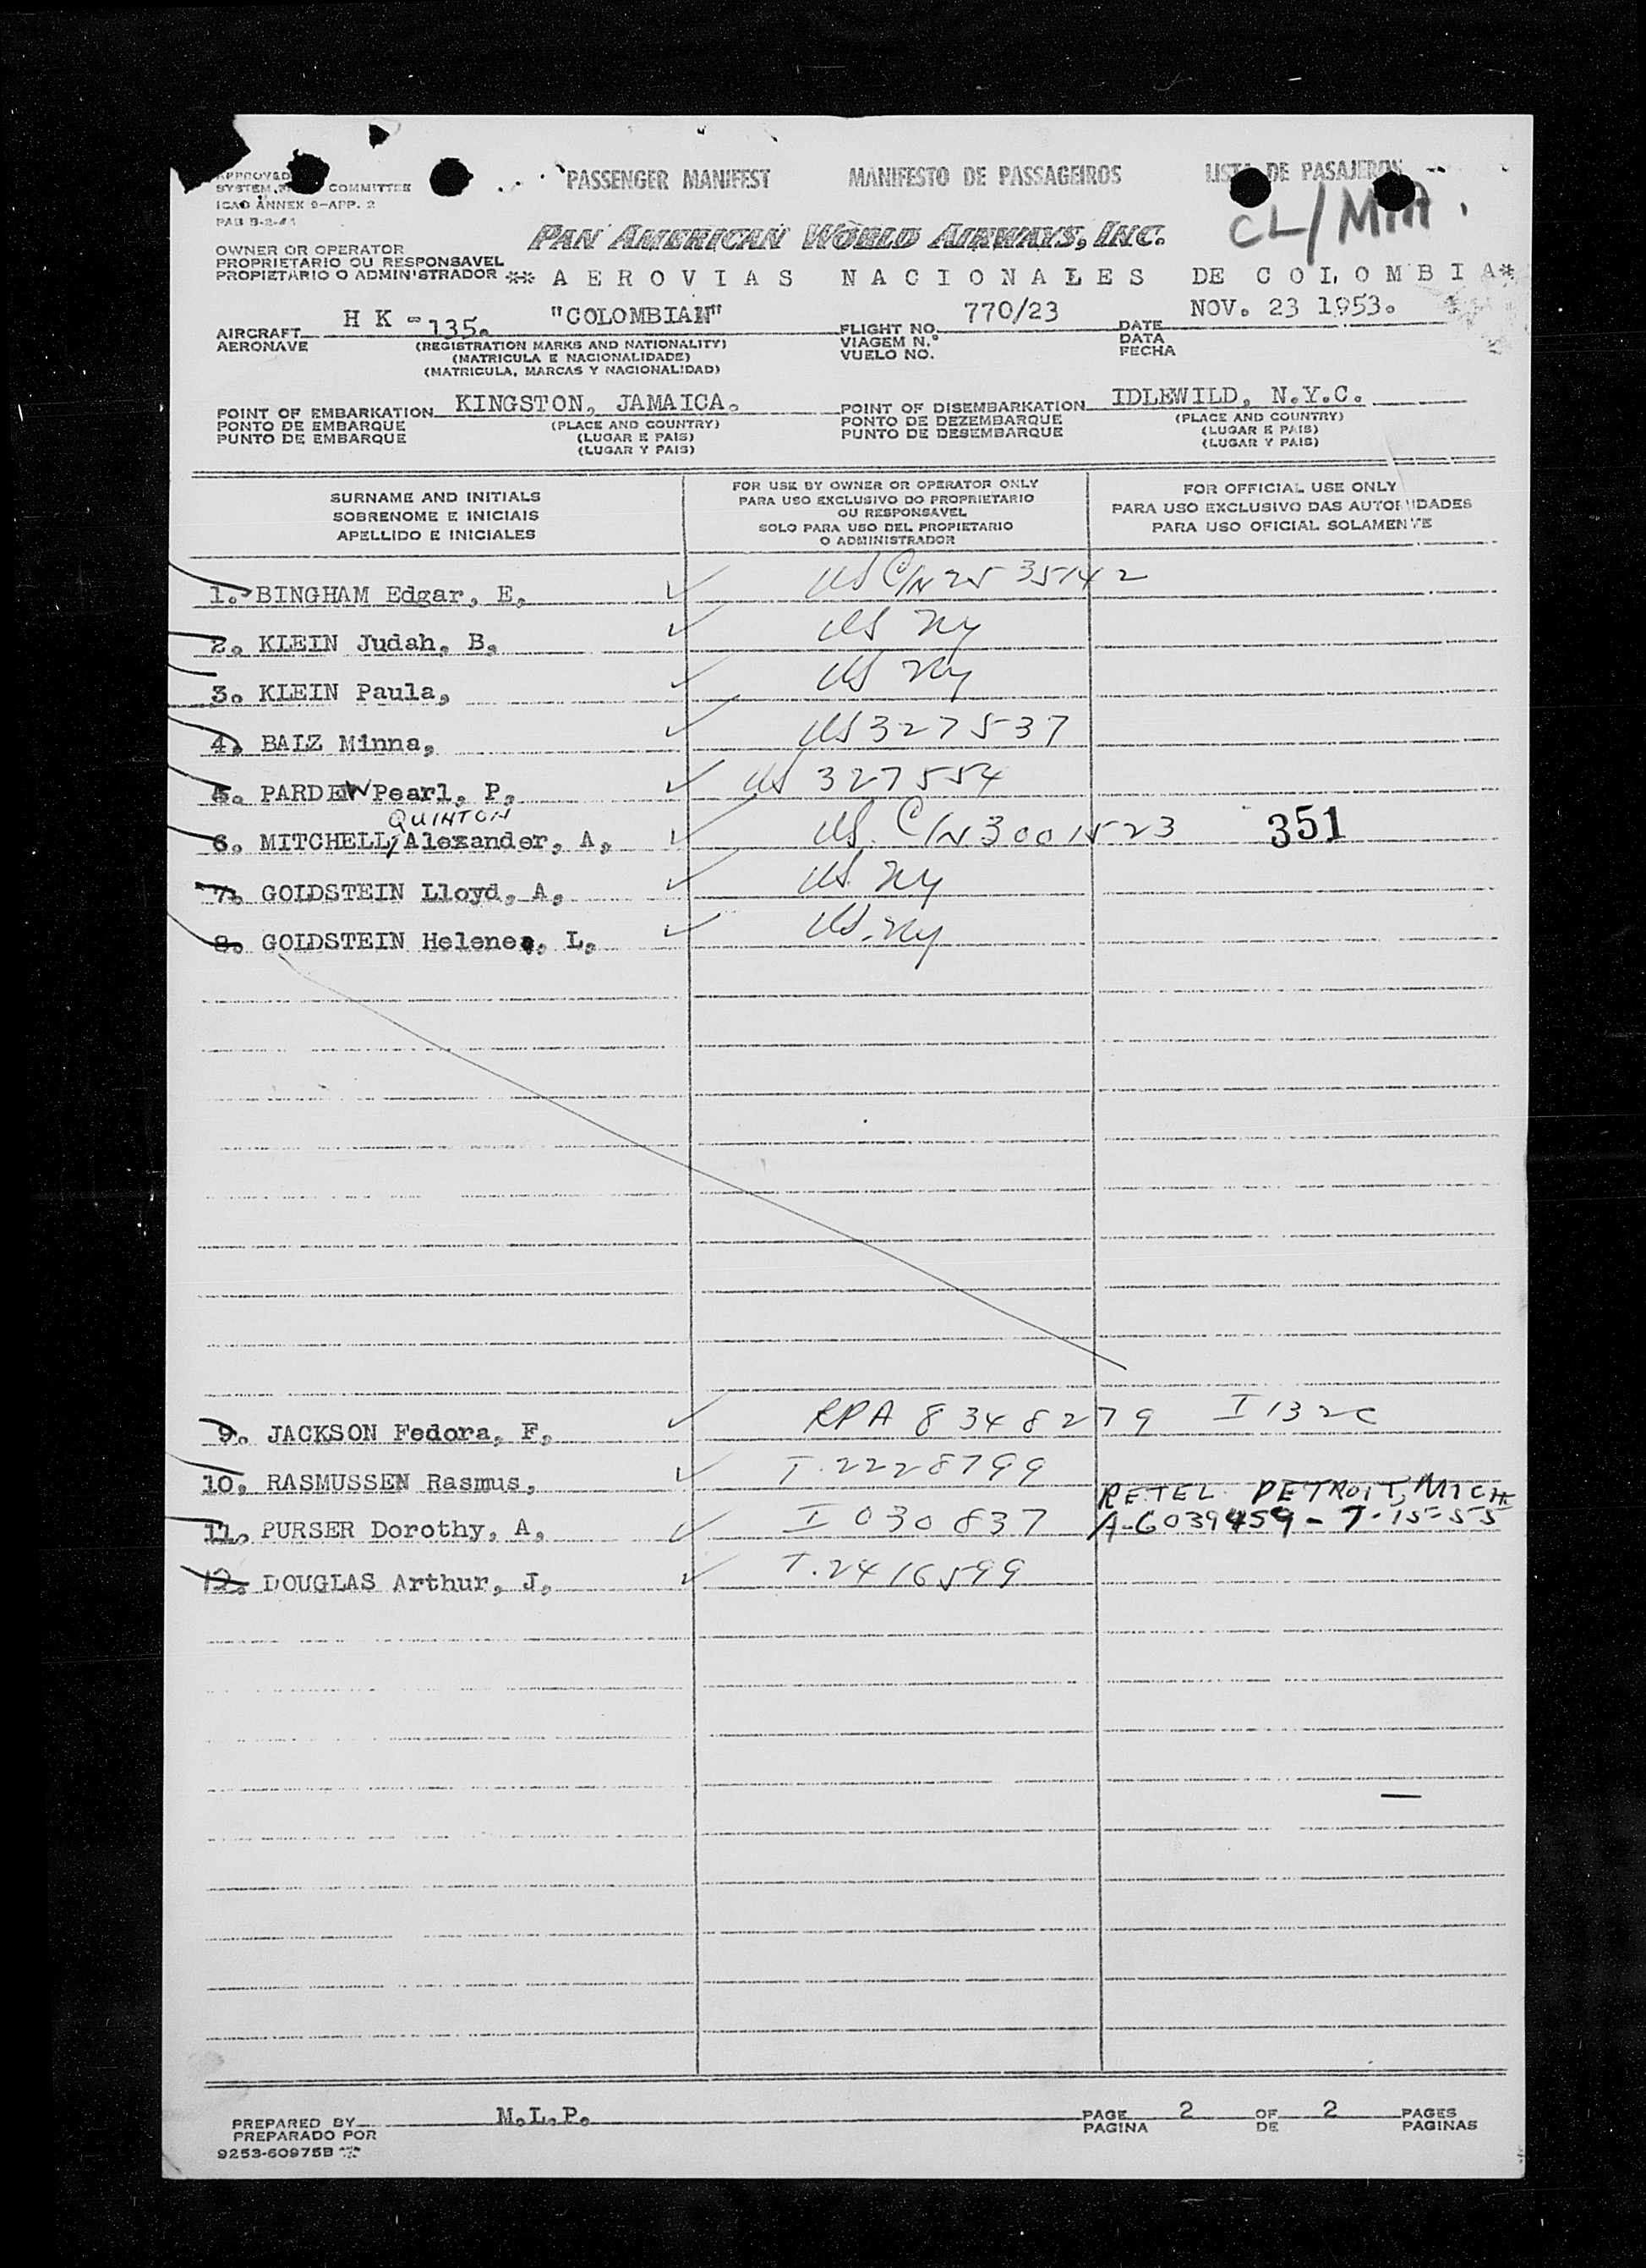 PASSENGER MANIFEST MANIFESTO DE PASSAGEIROS LISTA DE PASAJEROS
APPROVED
SYSTEM, COMMITTEE
ICAO ANNEX 9-APP. 2
CL/MIA.
PAN AMERICAN WORLD AIRWAYS, INC.
OWNER OR OPERATOR
PROPRIETARIO OU RESPONSAVEL
PROPIETARIO O ADMINISTRADOR ** AEROVIAS NACIONALES DE COLOMBIA*
AIRCRAFT HK-135. "COLOMBIAN" FLIGHT NO. 770/23 DATE NOV. 23 1953.
AERONAVE (REGISTRATION MARKS AND NATIONALITY) VIAGEM N.º DATA
(MATRICULA E NACIONALIDADE) VUELO NO. FECHA
(MATRICULA, MARCAS Y NACIONALIDAD)
POINT OF EMBARKATION KINGSTON, JAMAICA. POINT OF DISEMBARKATION IDLEWILD, N.Y.C.
PONTO DE EMBARQUE (PLACE AND COUNTRY) PONTO DE DEZEMBARQUE (PLACE AND COUNTRY)
PUNTO DE EMBARQUE (LUGAR E PAIS) PUNTO DE DESEMBARQUE (LUGAR E PAIS)
(LUGAR Y PAIS) (LUGAR Y PAIS)
SURNAME AND INITIALS
SOBRENOME E INICIAIS
APELLIDO E INICIALES
FOR USE BY OWNER OR OPERATOR ONLY
PARA USO EXCLUSIVO DO PROPRIETARIO
OU RESPONSAVEL
SOLO PARA USO DEL PROPIETARIO
O ADMINISTRADOR
FOR OFFICIAL USE ONLY
PARA USO EXCLUSIVO DAS AUTORIDADES
PARA USO OFICIAL SOLAMENTE
1. BINGHAM Edgar, E, US C/N 2535142
2. KLEIN Judah, B, US NY
3. KLEIN Paula, US NY
4. BALZ Minna, US 327537
5. PARDEW Pearl, P, US 327554
QUINTON
6. MITCHELL, Alexander, A, US. C/N 3001523 351
7. GOLDSTEIN Lloyd, A, US. NY
8. GOLDSTEIN Helene, L, US. NY
9. JACKSON Fedora, F, RPA 8348279 I 132C
10. RASMUSSEN Rasmus, T. 2228799
RETEL DETROIT, MICH
11. PURSER Dorothy, A, I 030837 A-6039459 - 7-15-55
12. DOUGLAS Arthur, J, T. 2416599
PREPARED BY M.L.P. PAGE 2 OF 2 PAGES
PREPARADO POR PAGINA DE PAGINAS
9253-60975B